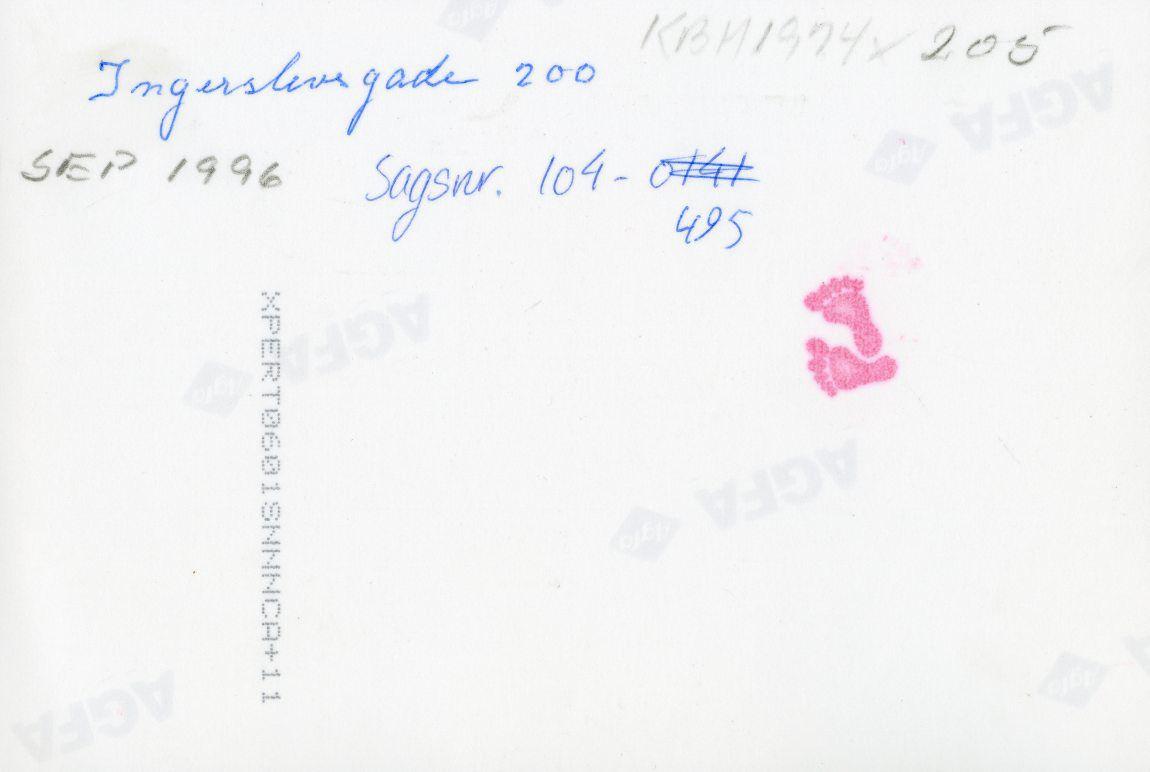 KBH1974x 205
Ingerslevsgade 200
SEP 1996
Sagsnr. 104-0141
495
XPERT0601SNNNCA+11
AGFA
Agfa
AGFA
Agfa
AGFA
Agfa
AGFA
Agfa
Agfa